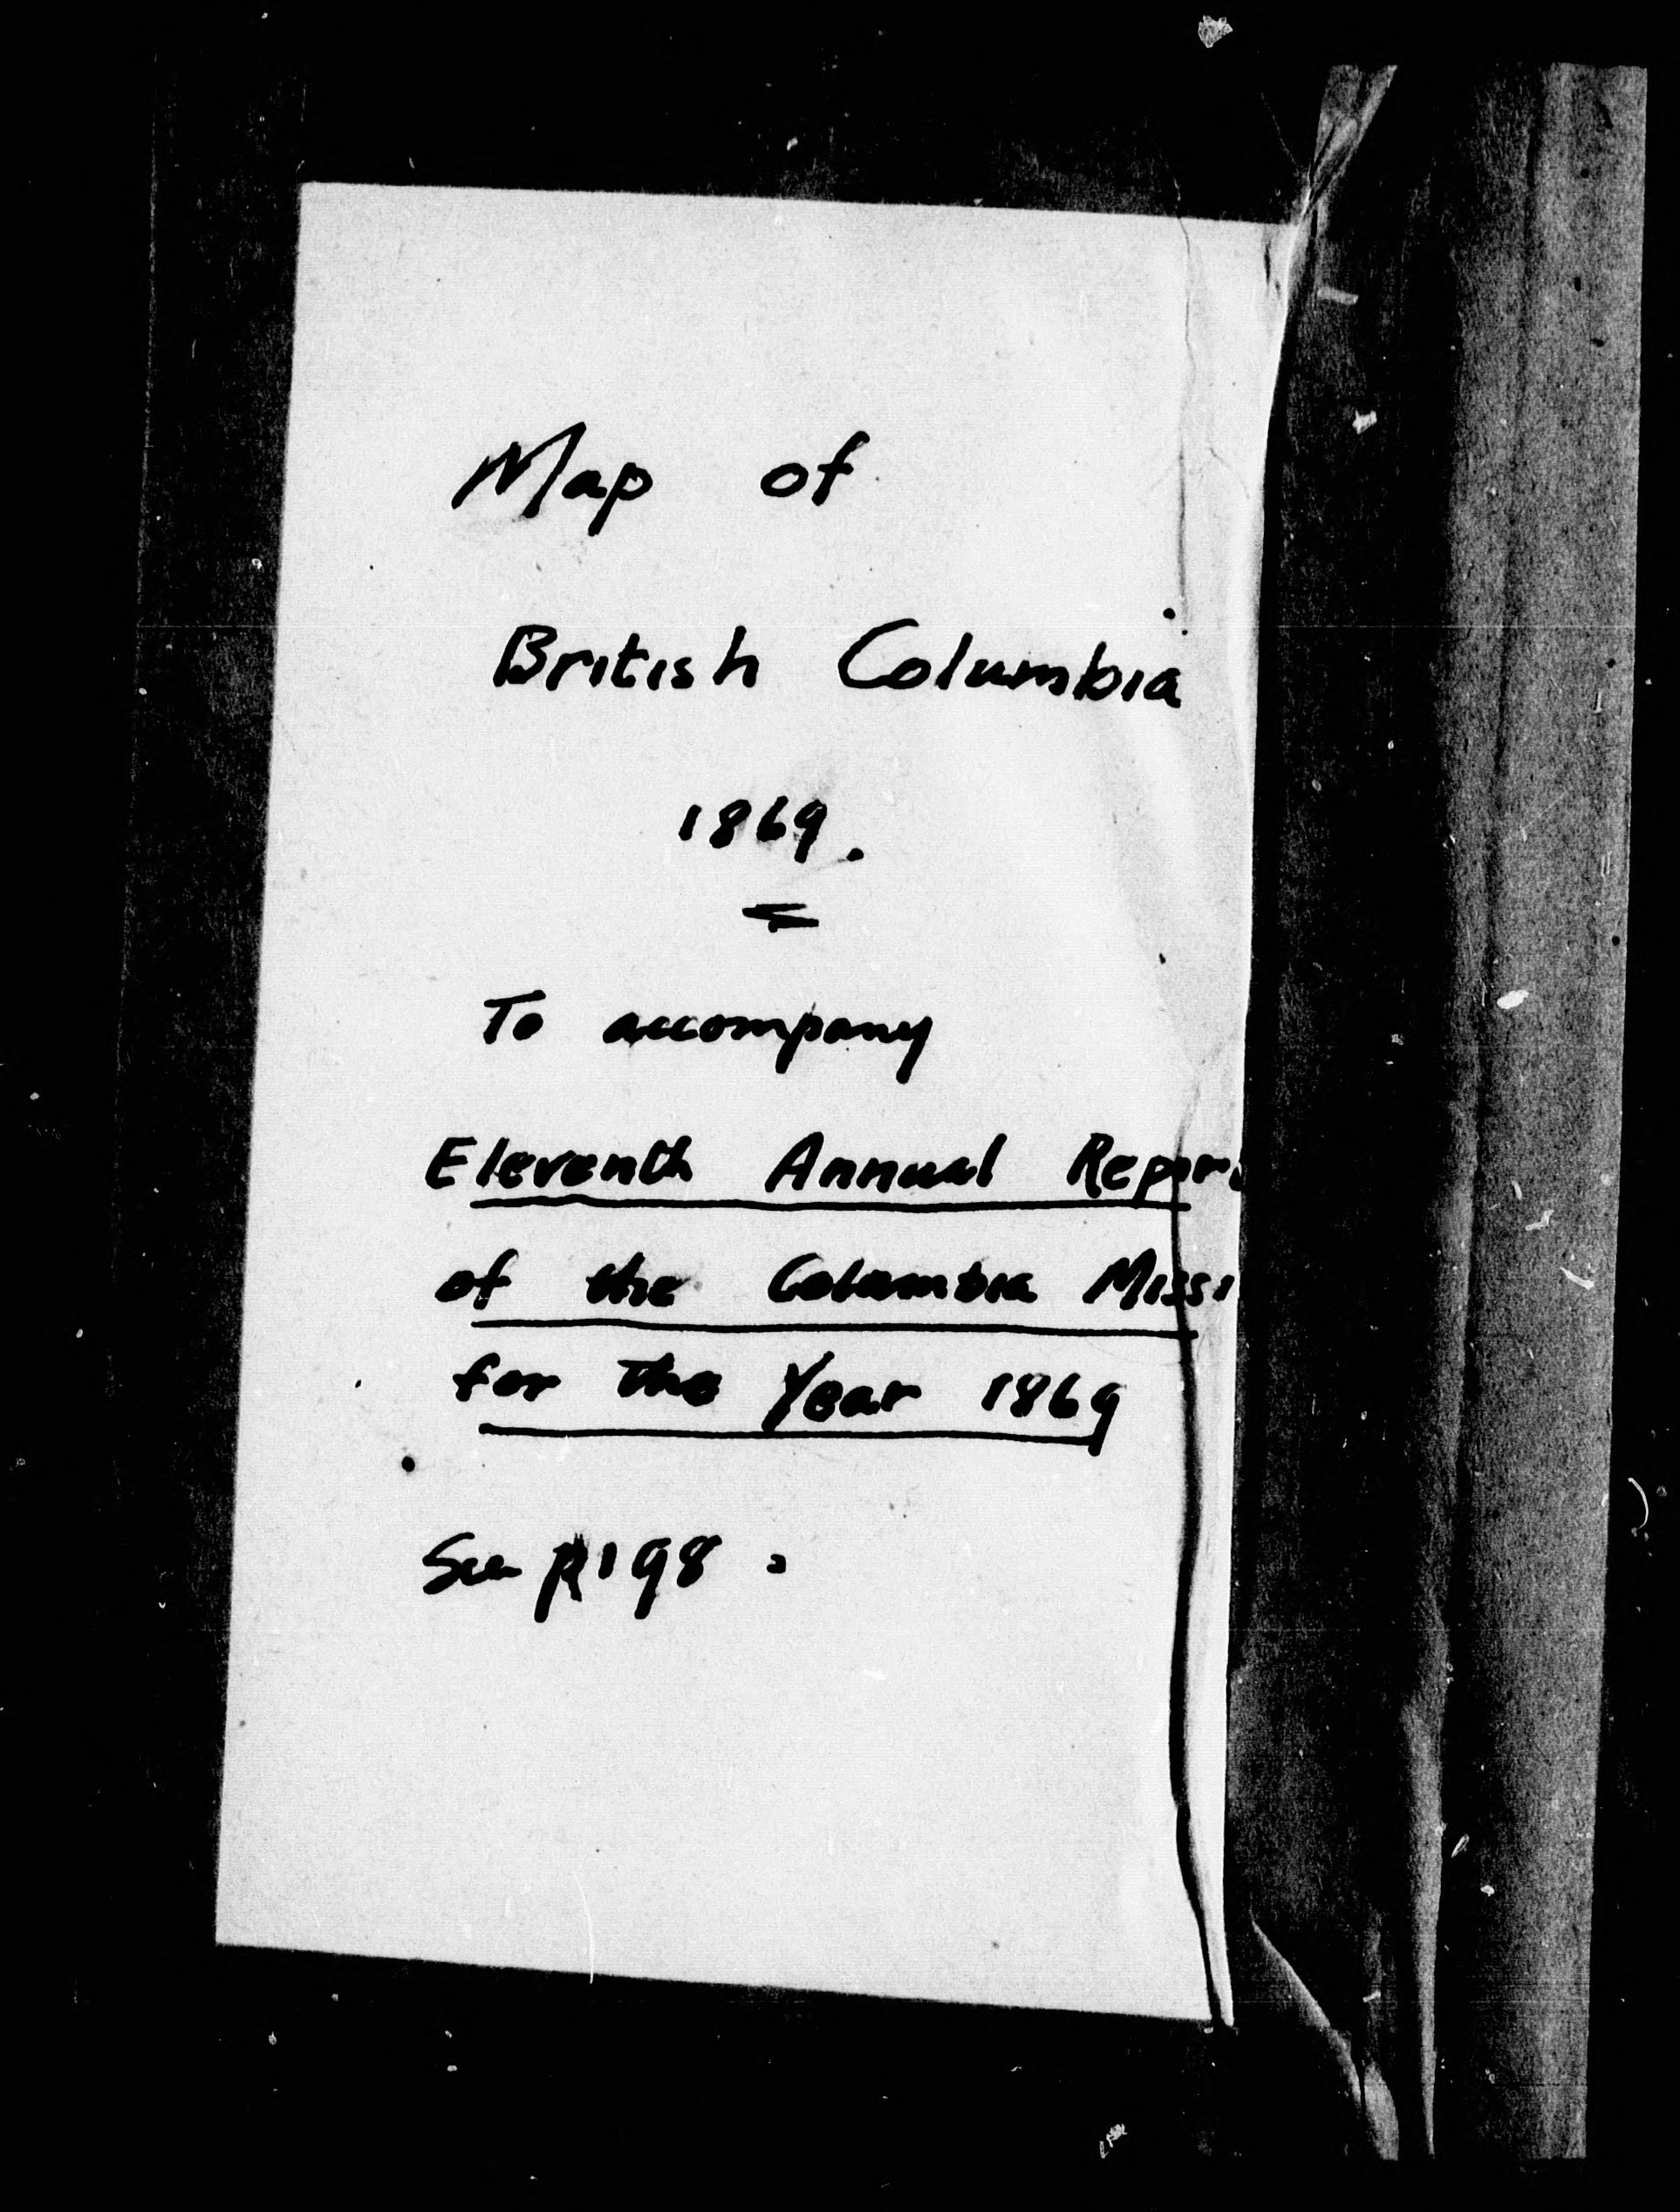 Map of
British Columbia
1869.
To accompany
Eleventh Annual Repor
of the Columbia Missi
for the Year 1869
See p 198.